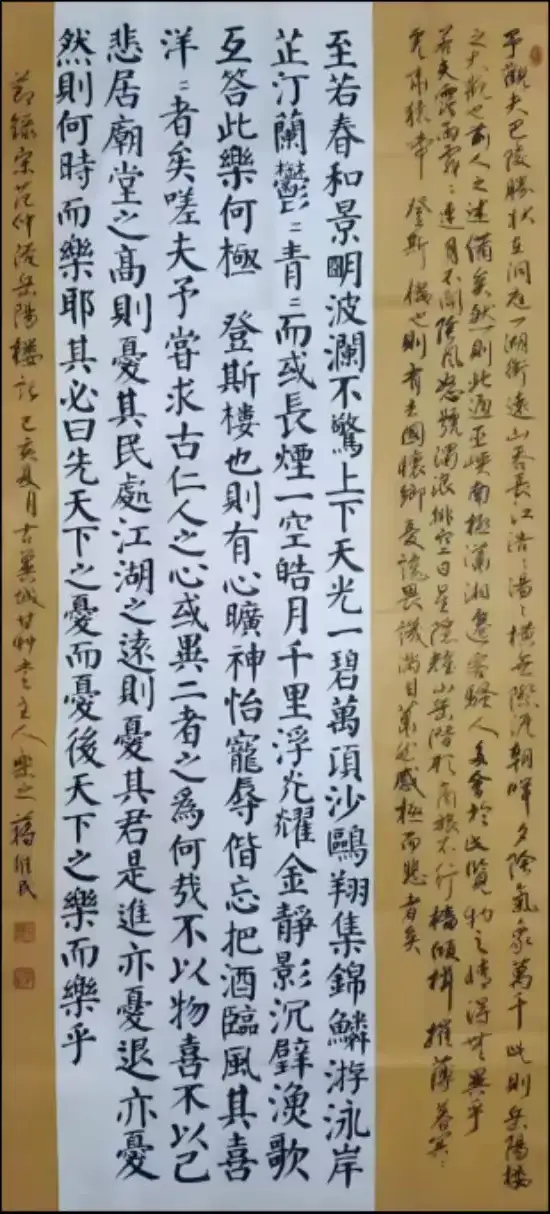 予觀夫巴陵勝狀在洞庭一湖銜遠山吞長江浩:湯:橫無際涯朝暉夕陰氣象萬千此則岳陽樓
之大觀也前人之述備矣然則北通巫峽南極瀟湘遷客騷人多會於此覽物之情得無異乎
若夫霪雨霏:連月不開陰風怒號濁浪排空日星隱耀山岳潛形商旅不行檣傾楫摧薄暮冥:
虎嘯猿啼 登斯樓也則有去國懷鄉憂讒畏譏滿目蕭然感極而悲者矣
至若春和景明波瀾不驚上下天光一碧萬頃沙鷗翔集錦鱗游泳岸
芷汀蘭鬱:青:而或長煙一空皓月千里浮光耀金靜影沉璧漁歌
互答此樂何極 登斯樓也則有心曠神怡寵辱偕忘把酒臨風其喜
洋:者矣嗟夫予嘗求古仁人之心或異二者之為何哉不以物喜不以己
悲居廟堂之高則憂其民處江湖之遠則憂其君是進亦憂退亦憂
然則何時而樂耶其必曰先天下之憂而憂後天下之樂而樂乎
節錄宋范仲淹岳陽樓記 己亥夏月古冀城甘艸主人樂之蔣維民